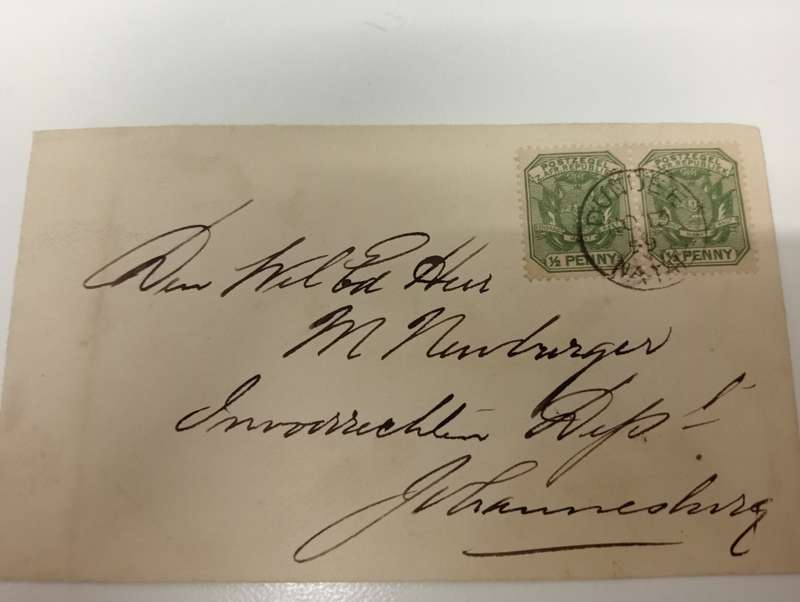 POSTZEGEL POSTZEGEL
Z. AFR. REPUBLIEK Z. AFR. REPUBLIEK
DUNDEE
NATAL
½ PENNY ½ PENNY
Den Wel Ed Heer
M Neuburger
Invoorrechten Dept
Johannesburg